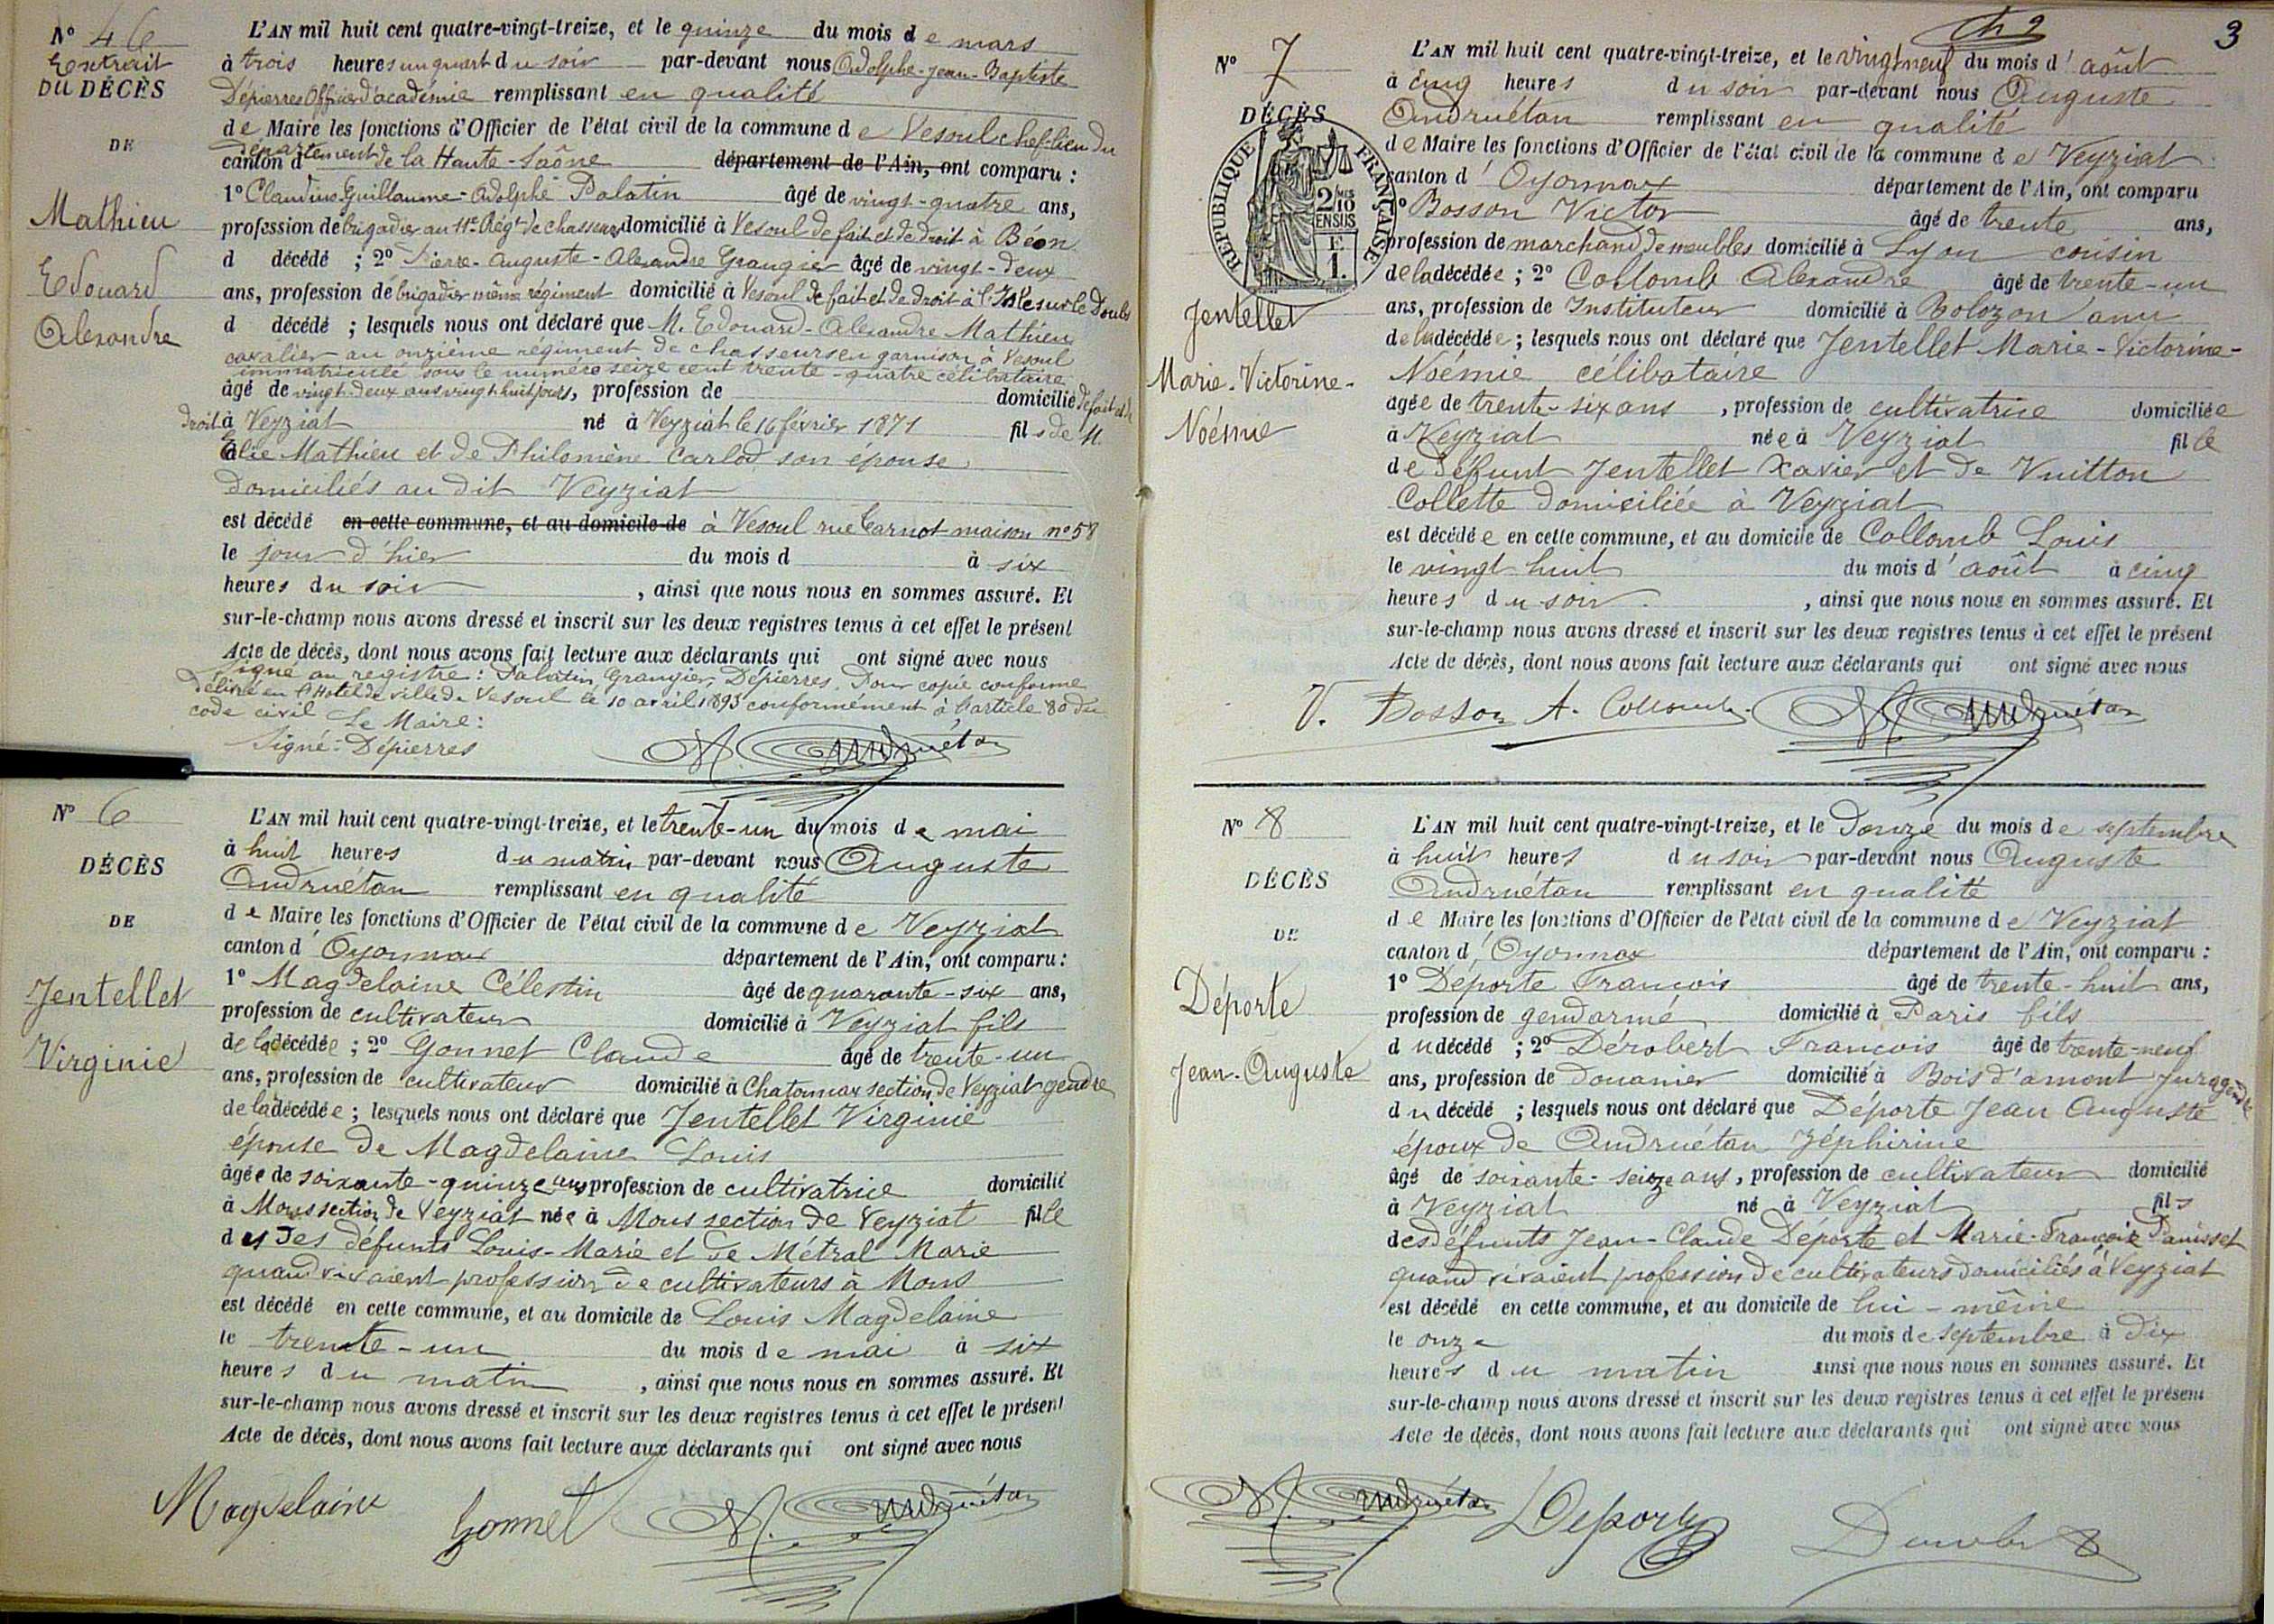 N° 46
Extrait
DU DÉCÈS
DE
Mathieu
Edouard
Alexandre
L'AN mil huit cent quatre-vingt-treize, et le quinze du mois de mars
à trois heures un quart du soir par-devant nous Adolphe-Jean-Baptiste
Dépierres Officier d'académie remplissant en qualité
de Maire les fonctions d'Officier de l'état civil de la commune de Vesoul chef-lieu du
département de la Haute-Saône
canton d département de l'Ain, ont comparu :
1° Claudius-Guillaume-Adolphe Palatin âgé de vingt-quatre ans,
profession de brigadier au 11e Régt de chasseurs domicilié à Vesoul de fait et de droit à Béon
d décédé ; 2° Pierre-Auguste-Alexandre Grangier âgé de vingt-deux
ans, profession de brigadier même régiment domicilié à Vesoul de fait et de droit à l'Isle sur le Doubs
d décédé ; lesquels nous ont déclaré que M. Edouard-Alexandre Mathieu
cavalier au onzième régiment de chasseurs en garnison à Vesoul
immatriculé sous le numéro seize cent trente-quatre célibataire
âgé de vingt-deux ans vingt huit jours, profession de domicilié de fait et de
droit à Veyziat né à Veyziat le 16 février 1871 fils de M.
Elie Mathieu et de Philomène Carlod son épouse
domiciliés au dit Veyziat
est décédé en cette commune, et au domicile de à Vesoul rue Carnot maison n° 58
le jour d'hier du mois d à six
heures du soir , ainsi que nous nous en sommes assuré. Et
sur-le-champ nous avons dressé et inscrit sur les deux registres tenus à cet effet le présent
Acte de décès, dont nous avons fait lecture aux déclarants qui ont signé avec nous
Signé au registre : Palatin, Grangier, Dépierres. Pour copie conforme
Délivré en l'Hotel de ville de Vesoul le 10 avril 1893 conformément à l'article 80 du
code civil Le Maire :
Signé : Dépierres
A. Andruétan
N° 6
DÉCÈS
DE
Jentellet
Virginie
L'AN mil huit cent quatre-vingt-treize, et le trente-un du mois de mai
à huit heures du matin par-devant nous Auguste
Andruétan remplissant en qualité
de Maire les fonctions d'Officier de l'état civil de la commune de Veyziat
canton d'Oyonnax département de l'Ain, ont comparu :
1° Magdelaine Célestin âgé de quarante-six ans,
profession de cultivateur domicilié à Veyziat fils
de la décédée ; 2° Gonnet Claude âgé de trente-un
ans, profession de cultivateur domicilié à Chatonnax section de Veyziat gendre
de la décédée ; lesquels nous ont déclaré que Jentellet Virginie
épouse de Magdelaine Louis
âgée de soixante-quinze ans profession de cultivatrice domicilié
à Mons section de Veyziat née à Mons section de Veyziat fille
des des défunts Louis-Marie et de Métral Marie
quand vivaient profession de cultivateurs à Mons
est décédé en cette commune, et au domicile de Louis Magdelaine
le trente-un du mois de mai à six
heures du matin , ainsi que nous nous en sommes assuré. Et
sur-le-champ nous avons dressé et inscrit sur les deux registres tenus à cet effet le présent
Acte de décès, dont nous avons fait lecture aux déclarants qui ont signé avec nous
Magdelaine Gonnet A. Andruétan
3
N° 7
DÉCÈS
RÉPUBLIQUE FRANÇAISE
2/10 EN SUS
F. 1.
Jentellet
Marie-Victorine-
Noémie
L'AN mil huit cent quatre-vingt-treize, et le vingt neuf du mois d'août
à cinq heures du soir par-devant nous Auguste
Andruétan remplissant en qualité
de Maire les fonctions d'Officier de l'état civil de la commune de Veyziat
canton d'Oyonnax département de l'Ain, ont comparu
1° Bosson Victor âgé de trente ans,
profession de marchand de meubles domicilié à Lyon cousin
de la décédée ; 2° Collomb Alexandre âgé de trente-un
ans, profession de Instituteur domicilié à Bolozon ami
de la décédée ; lesquels nous ont déclaré que Jentellet Marie-Victorine-
Noémie célibataire
agée de trente-six ans , profession de cultivatrice domiciliée
à Veyziat née à Veyziat fille
de défunt Jentellet Xavier et de Vuitton
Collette domiciliée à Veyziat
est décédée en cette commune, et au domicile de Collomb Louis
le vingt huit du mois d'août à cinq
heures du soir , ainsi que nous nous en sommes assuré. Et
sur-le-champ nous avons dressé et inscrit sur les deux registres tenus à cet effet le présent
Acte de décès, dont nous avons fait lecture aux déclarants qui ont signé avec nous
V. Bosson A. Collomb A. Andruétan
N° 8
DÉCÈS
DE
Déporte
Jean-Auguste
L'AN mil huit cent quatre-vingt-treize, et le douze du mois de septembre
à huit heures du soir par-devant nous Auguste
Andruétan remplissant en qualité
de Maire les fonctions d'Officier de l'état civil de la commune de Veyziat
canton d'Oyonnax département de l'Ain, ont comparu :
1° Déporte François âgé de trente-huit ans,
profession de gendarme domicilié à Paris fils
du décédé ; 2° Dérobert François âgé de trente-neuf
ans, profession de douanier domicilié à Bois d'amont Jura gendre
du décédé ; lesquels nous ont déclaré que Déporte Jean Auguste
époux de Andruétan Zéphirine
âgé de soixante-seize ans, profession de cultivateur domicilié
à Veyziat né à Veyziat fils
des défunts Jean-Claude Déporte et Marie-Françoise Panisset
quand vivaient profession de cultivateurs domiciliés à Veyziat
est décédé en cette commune, et au domicile de lui-même
le onze du mois de septembre à dix
heures du matin ainsi que nous nous en sommes assuré. Et
sur-le-champ nous avons dressé et inscrit sur les deux registres tenus à cet effet le présent
Acte de décès, dont nous avons fait lecture aux déclarants qui ont signé avec nous
A. Andruétan Deporte